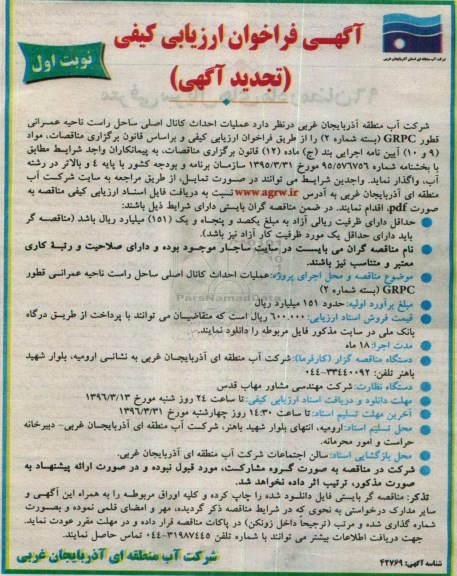 شرکت آب منطقه ای استان آذربایجان غربی
آگهـی فراخوان ارزیابی کیفی
(تجدید آگهی)
نوبت اول
شرکت آب منطقه آذربایجان غربی درنظر دارد عملیات احداث کانال اصلی ساحل راست ناحیه عمـرانی
قطور GRPC (بسته شماره ۲) را از طریق فراخوان ارزیابی کیفی و براساس قانون برگزاری مناقصات، مواد
(۹ و ۱۰) آیین نامه اجرایی بند (ج) ماده (۱۲) قانون برگزاری مناقصات، به پیمانکاران واجد شرایط مطابق
با بخشنامه شماره ۹۵/۵۷۶۷۵۶ مورخ ۱۳۹۵/۳/۳۱ سازمـان برنامه و بودجه کشور با پایه ۴ و بالاتر در رشته
آب، واگذار نماید. واجدین شرایـط می توانند در صـورت تمایـل، از طریق مراجعه به سایت شرکت آب
منطقه ای آذربایجان غربی به آدرس www.agrw.ir نسبت به دریافت فایل اسنـاد ارزیابی کیفی مناقصه به
صورت pdf، اقدام نمایند. در ضمن مناقصه گران بایستی دارای شرایط ذیل باشند:
حداقل دارای ظرفیت ریالی آزاد به مبلغ یکصد و پنجـاه و یک (۱۵۱) میلیارد ریال باشد (مناقصـه گر
باید دارای حداقل یک مورد ظرفیت کار آزاد نیز باشد).
نام مناقصه گران می بایسـت در سایت ساجـار موجـود بوده و دارای صلاحیت و رتبـۀ کاری
معتبر و متناسب نیز باشند.
موضوع مناقصه و محل اجرای پروژه: عملیات احداث کانال اصلی ساحل راست ناحیه عمرانـی قطور
GRPC (بسته شماره ۲)
مبلغ برآورد اولیه: حدود ۱۵۱ میلیارد ریال
قیمت فروش اسناد ارزیابی: ۶۰۰.۰۰۰ ریال است که متقاضیـان می توانند با پرداخت از طریـق درگاه
بانک ملی در سایت مذکور فایل مربوطه را دانلود نمایند.
مدت اجرا: ۱۸ ماه
دستگاه مناقصه گزار (کارفرما): شرکت آب منطقه ای آذربایجـان غربی به نشانـی ارومیه، بلوار شهید
باهنر تلفن: ۳۳۴۴۰۰۹۲-۰۴۴
دستگاه نظارت: شرکت مهندسی مشاور مهاب قدس
مهلت دانلود و دریافت اسناد ارزیابی کیفی: تا ساعت ۲۴ روز شنبه مورخ ۱۳۹۶/۳/۱۳
آخرین مهلت تسلیم اسناد: تا ساعت ۱۴:۳۰ روز چهارشنبه مورخ ۱۳۹۶/۳/۳۱
محل تسلیم اسناد: ارومیه، انتهای بلوار شهید باهنر، شرکت آب منطقه ای آذربایجان غربی- دبیرخانه
حراست و امور محرمانه.
محل بازگشایی اسناد: سالن اجتماعات شرکت آب منطقه ای آذربایجان غربی.
شرکت در مناقصه به صورت گـروه مشارکـت، مورد قبول نبوده و در صورت ارائه پیشنهـاد به
صورت مذکور، ترتیب اثر داده نخواهد شد.
تذکر: مناقصه گر بایستی فایل دانلـود شده را چاپ کرده و کلیه اوراق مربوطـه را به همراه این آگهـی و
سایر مدارک درخواستی به نحوی که در شرایط مناقصه ذکر گردیده، مهر و امضای قلمی نموده و بصـورت
شماره گذاری شده و مرتب (ترجیحاً داخل زونکن) در پاکات مناقصه قرار داده و در مهلت مقرر عودت نماید.
جهت دریافت اطلاعات بیشتر می توانند با شماره تلفن ۳۱۹۸۷۴۴۵-۰۴۴ تماس حاصل نمایند.
شرکت آب منطقه ای آذربایجان غربی
شناسه آگهی: ۴۲۷۶۹
ParsNamadData